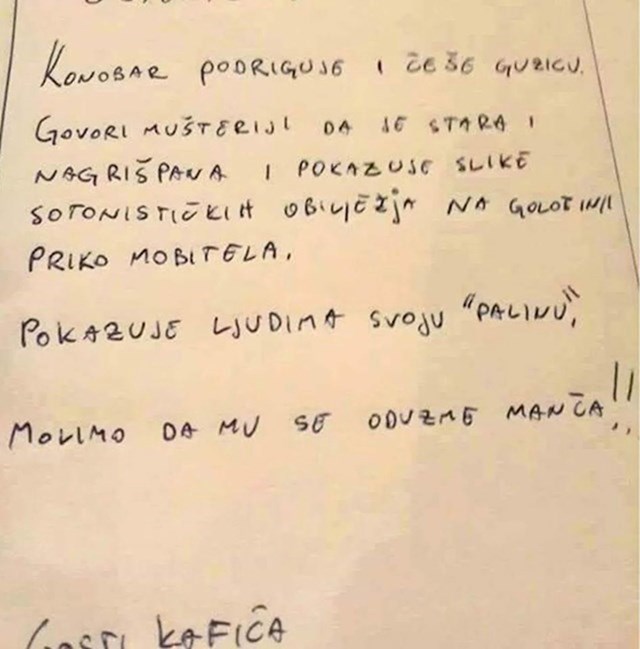 KONOBAR PODRIGUJE I ČEŠE GUZICU.
GOVORI MUŠTERIJI DA JE STARA I
NAGRIŠPANA I POKAZUJE SLIKE
SOTONISTIČKIH OBILJEŽJA NA GOLOTINJI
PRIKO MOBITELA.
POKAZUJE LJUDIMA SVOJU "PALINU",
MOLIMO DA MU SE ODUZME MANČA!!
GOSTI KAFIĆA